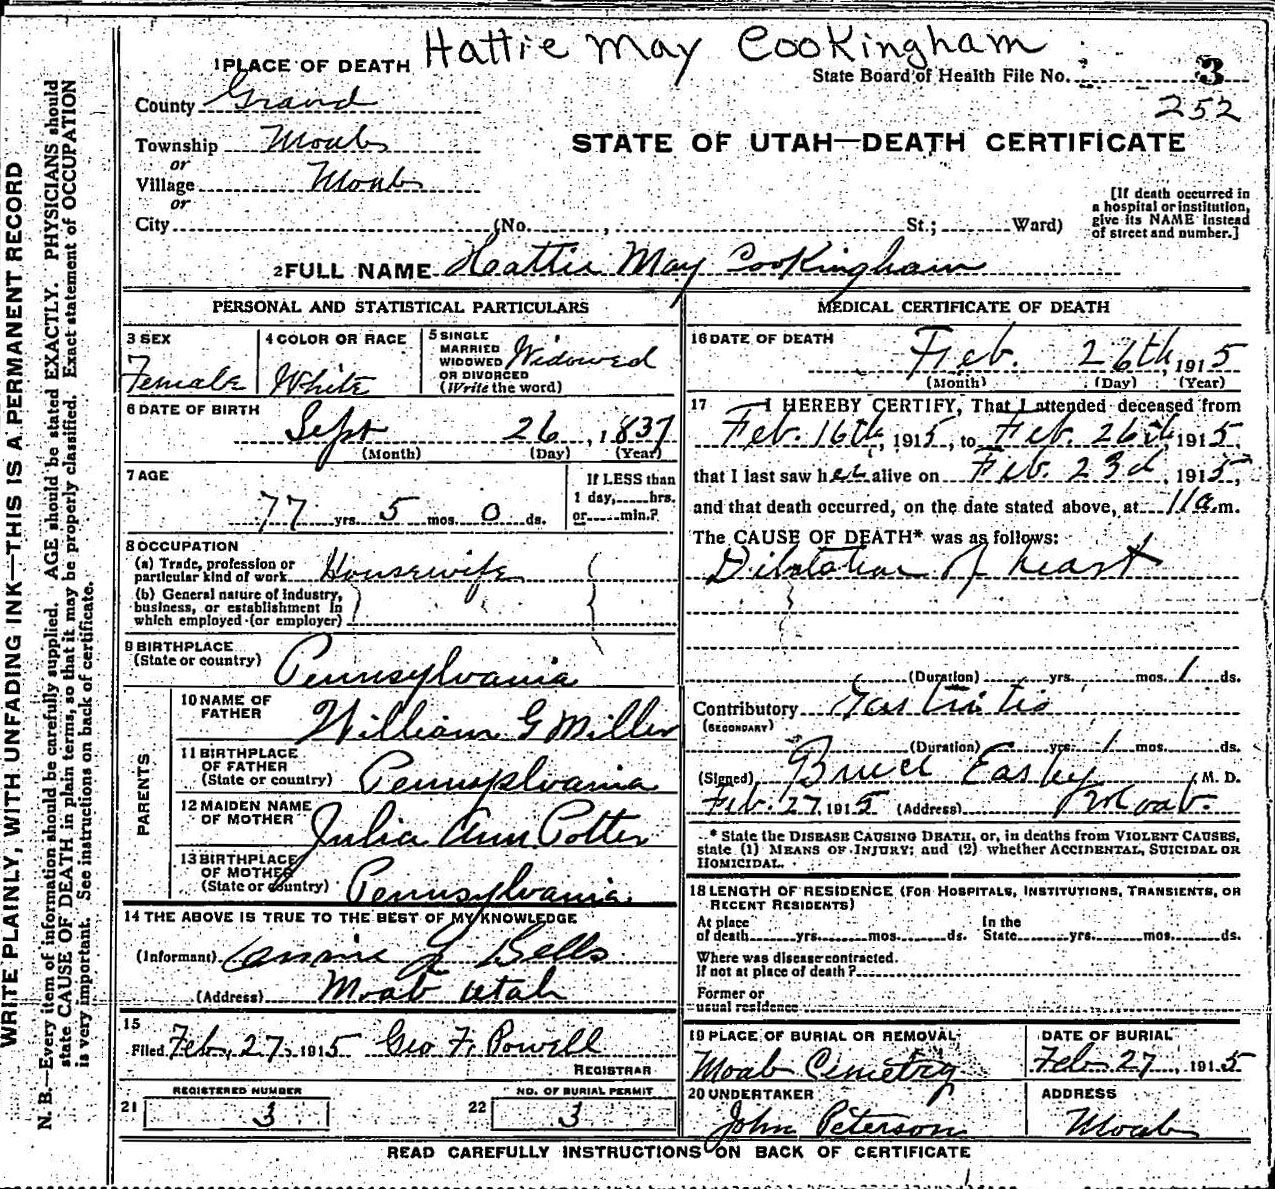 Hattie May Cookingham
1 PLACE OF DEATH
State Board of Health File No. 3
252
County Grand
STATE OF UTAH—DEATH CERTIFICATE
Township Moab
or
Village Moab
or
City (No. , St.; Ward)
[If death occurred in
a hospital or institution,
give its NAME instead
of street and number.]
2 FULL NAME Hattie May Cookingham
PERSONAL AND STATISTICAL PARTICULARS
3 SEX
Female
4 COLOR OR RACE
White
5 SINGLE
MARRIED
WIDOWED
OR DIVORCED
(Write the word)
Widowed
6 DATE OF BIRTH
Sept 26, 1837
(Month) (Day) (Year)
7 AGE
77 yrs. 5 mos. 0 ds.
If LESS than
1 day, hrs.
or min.?
8 OCCUPATION
(a) Trade, profession or
particular kind of work Housewife
(b) General nature of industry,
business, or establishment in
which employed (or employer)
9 BIRTHPLACE
(State or country) Pennsylvania
PARENTS
10 NAME OF
FATHER William G Miller
11 BIRTHPLACE
OF FATHER
(State or country) Pennsylvania
12 MAIDEN NAME
OF MOTHER Julia Ann Potter
13 BIRTHPLACE
OF MOTHER
(State or country) Pennsylvania
14 THE ABOVE IS TRUE TO THE BEST OF MY KNOWLEDGE
(Informant) Annie Bells
(Address) Moab Utah
15
Filed Feb. 27, 1915 Geo F. Powell
REGISTRAR
REGISTERED NUMBER
21 3
NO. OF BURIAL PERMIT
22 3
MEDICAL CERTIFICATE OF DEATH
16 DATE OF DEATH
Feb. 26th, 1915
(Month) (Day) (Year)
17 I HEREBY CERTIFY, That I attended deceased from
Feb. 16th, 1915, to Feb. 26th, 1915,
that I last saw her alive on Feb. 23d, 1915,
and that death occurred, on the date stated above, at 11 a.m.
The CAUSE OF DEATH* was as follows:
Dilatation of heart
(Duration) yrs. mos. 1 ds.
Contributory Gastritis
(SECONDARY)
(Duration) yrs. 1 mos. ds.
(Signed) Bruce Easley M. D.
Feb. 27, 1915 (Address) Moab.
* State the DISEASE CAUSING DEATH, or, in deaths from VIOLENT CAUSES,
state (1) MEANS OF INJURY; and (2) whether ACCIDENTAL, SUICIDAL OR
HOMICIDAL.
18 LENGTH OF RESIDENCE (FOR HOSPITALS, INSTITUTIONS, TRANSIENTS, OR
RECENT RESIDENTS)
At place
of death yrs. mos. ds.
In the
State yrs. mos. ds.
Where was disease contracted.
If not at place of death?
Former or
usual residence
19 PLACE OF BURIAL OR REMOVAL
Moab Cemetry
DATE OF BURIAL
Feb 27, 1915
20 UNDERTAKER
John Peterson
ADDRESS
Moab
READ CAREFULLY INSTRUCTIONS ON BACK OF CERTIFICATE
WRITE PLAINLY, WITH UNFADING INK—THIS IS A PERMANENT RECORD
N. B.—Every item of information should be carefully supplied. AGE should be stated EXACTLY. PHYSICIANS should
state CAUSE OF DEATH in plain terms, so that it may be properly classified. Exact statement of OCCUPATION
is very important. See instructions on back of certificate.